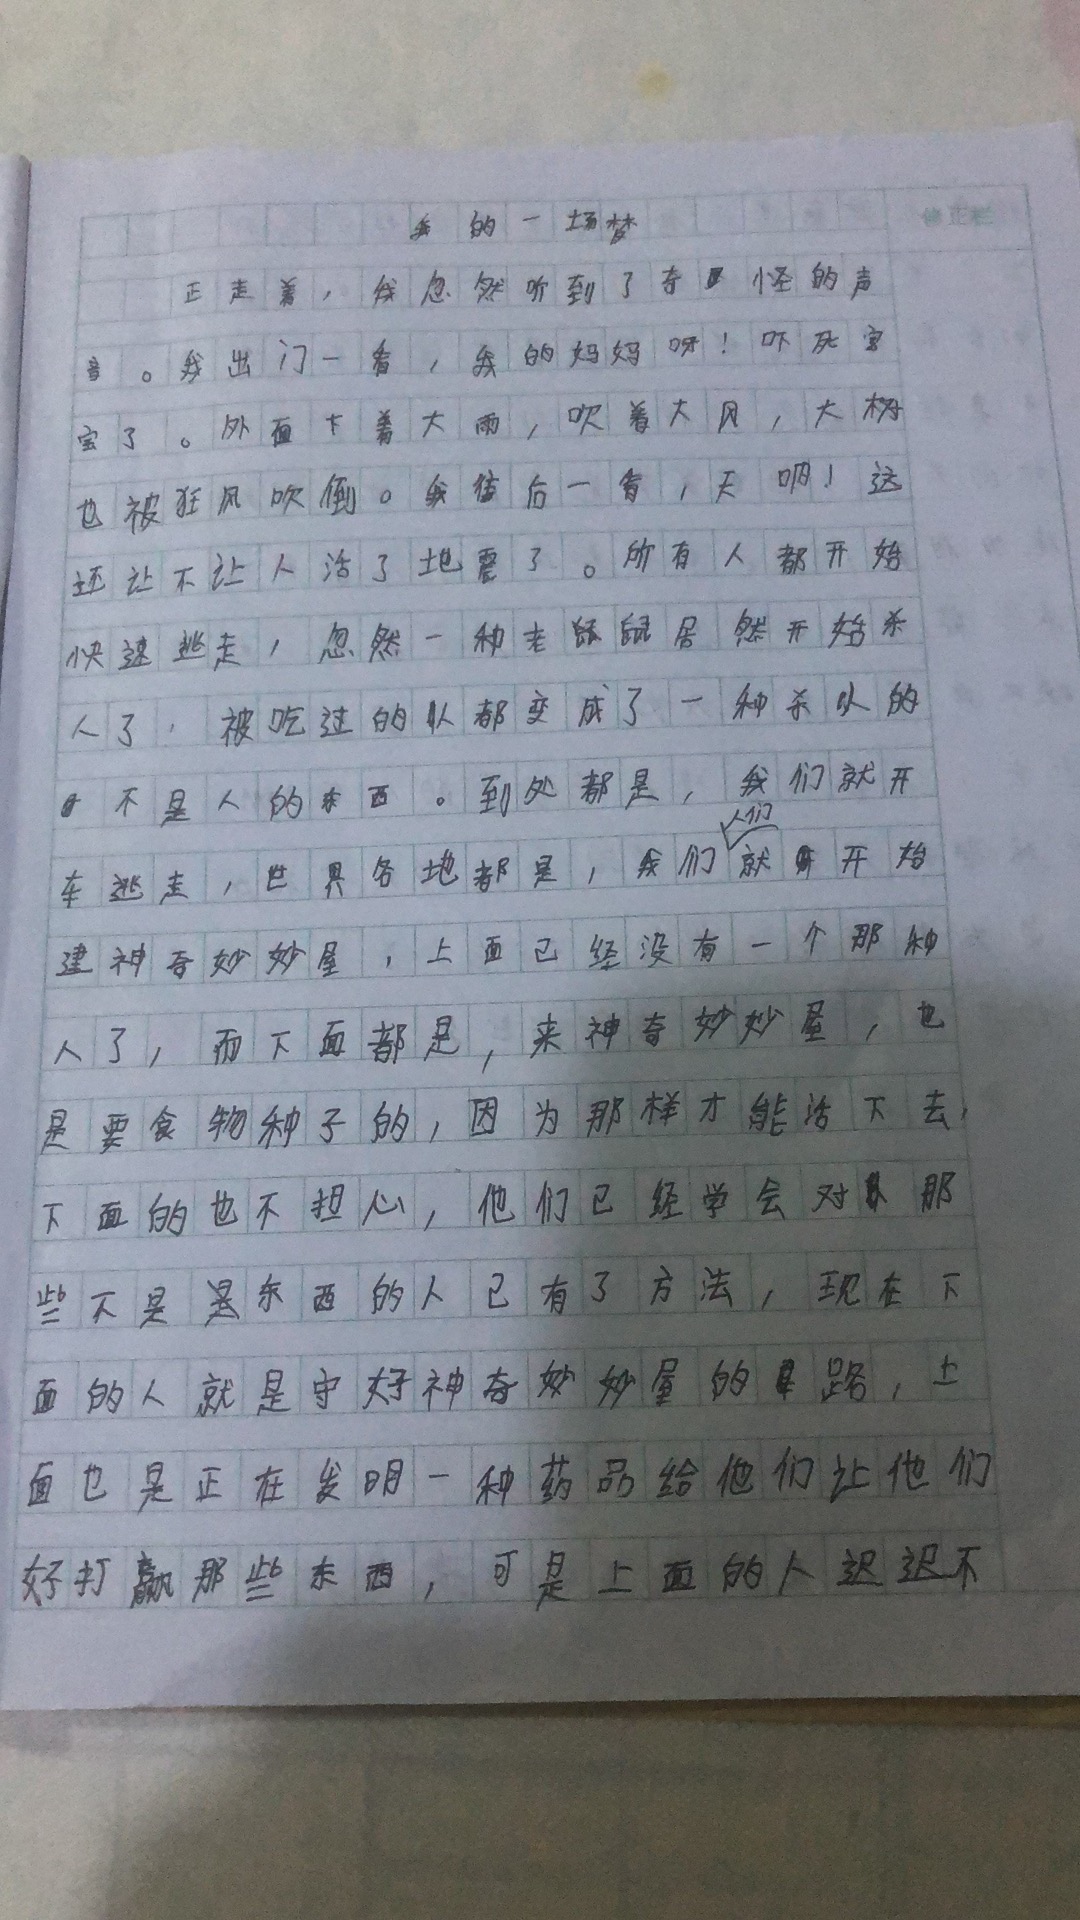 我的一场梦
修正栏
正走着，我忽然听到了奇怪的声
音。我出门一看，我的妈妈呀！吓死宝
宝了。外面下着大雨，吹着大风，大树
也被狂风吹倒。我往后一看，天呐！这
还让不让人活了地震了。所有人都开始
快速逃走，忽然一种老鼠居然开始杀
人了，被吃过的人都变成了一种杀人的
不是人的东西。到处都是，我们就开
车逃走，世界各地都是，我们人们就开始
建神奇妙妙屋，上面已经没有一个那种
人了，而下面都是，来神奇妙妙屋，也
是要食物种子的，因为那样才能活下去，
下面的也不担心，他们已经学会对那
些不是是东西的人已有了方法，现在下
面的人就是守好神奇妙妙屋的路，上
面也是正在发明一种药品给他们让他们
好打赢那些东西，可是上面的人迟迟不